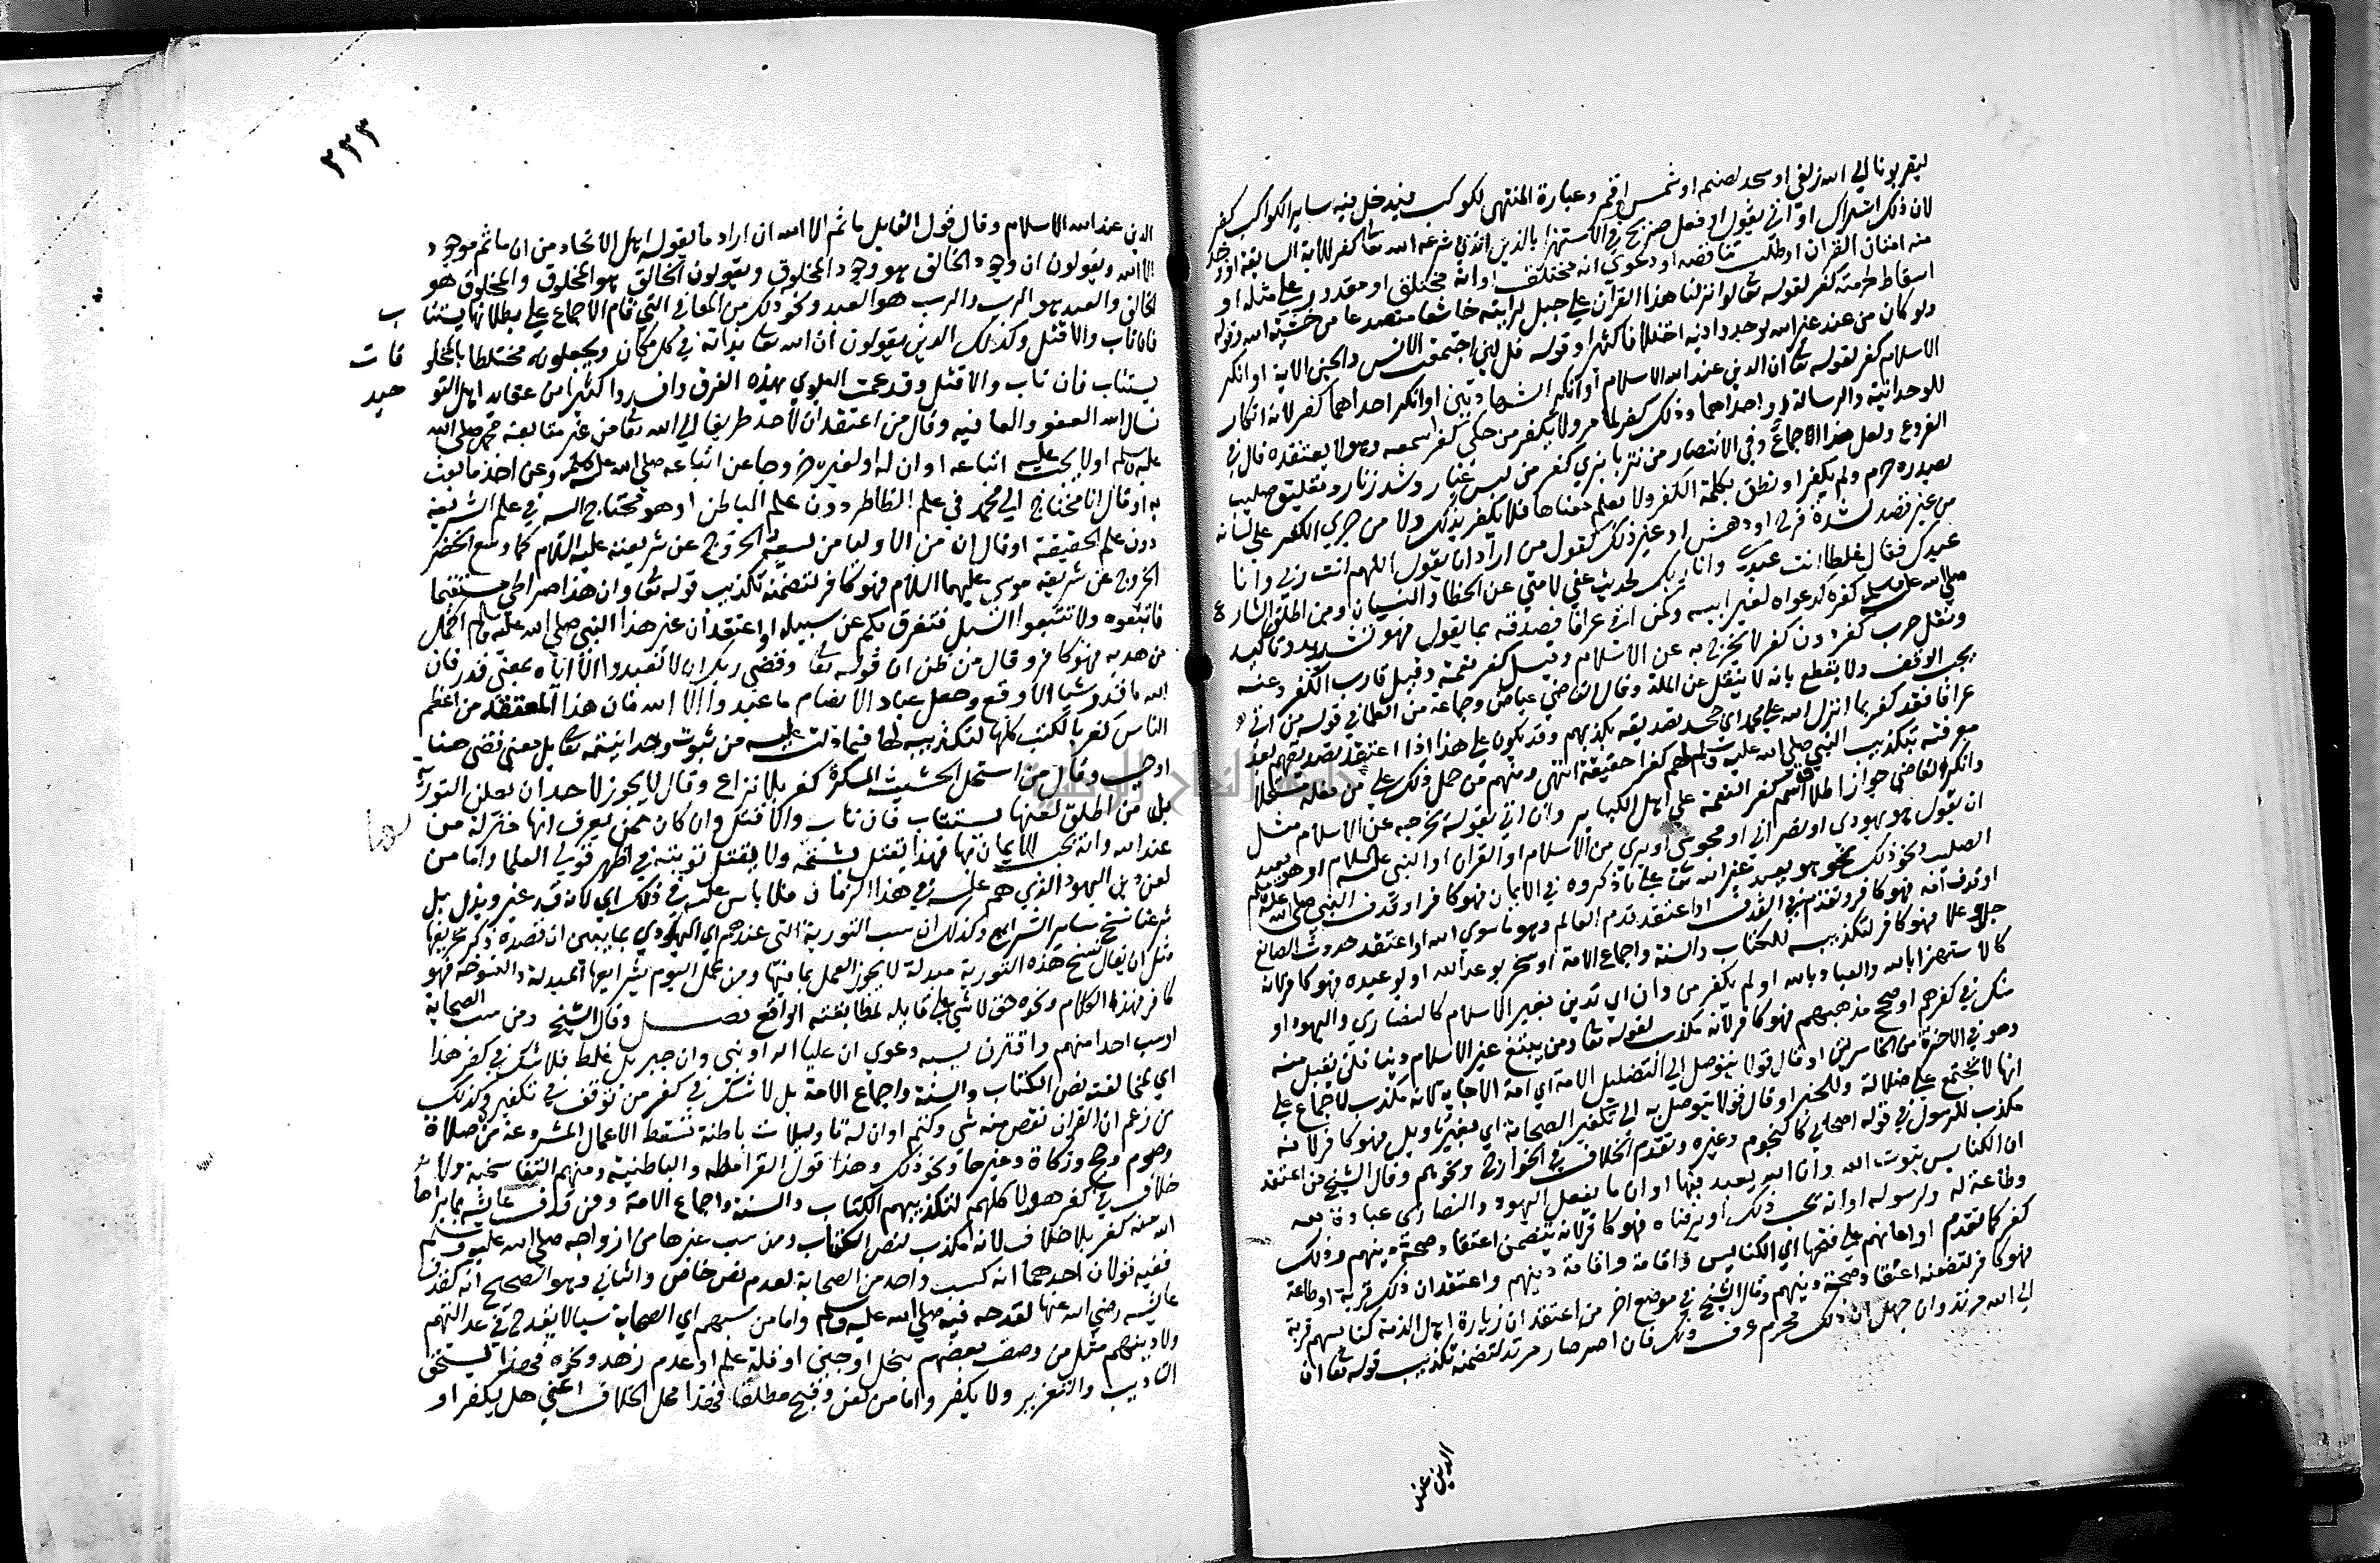 ليقربونا الي الله زلفي او سجد لصنم او شمس او قمر وعبارة المنتهى لكوكب فيدخل فيه ساير الكواكب كفر
لان ذلك اشراك او اتي بقول او فعل صريح في الاستهزا بالدين الذي شرعه الله تعا كفر للاية السابقة او وجد
منه امتهان القران او طلب تناقضه او دعوي انه مختلف او انه مختلق او مقدور علي مثله او
اسقاط لحرمته كفر لقوله تعا لو انزلنا هذا القرآن علي جبل لرايته خاشعا متصدعا من خشية الله وقوله
ولو كان من عند غير الله لوجدوا فيه اختلافا كثيرا وقوله قل لين اجتمعت الانس والجن الاية او انكر
الاسلام كفر لقوله تعا ان الدين عند الله الاسلام او انكر الشهادتين او انكر احداهما كفر لانه انكار
للوحدانية والرسالة او احداهما وذلك كفر لما مر ولا يكفر من حكي كفرا سمعه وهو لا يعتقده قال في
الفروع ولعل هذا اجماع وفي الانتصار من تزيا بزي كفر من لبس غيار وشد زنار وتعليق صليب
بصدره حرم ولم يكفر او نطق بكلمة الكفر ولا يعلم معناها فلا يكفر بذلك ولا من جري الكفر علي لسانه
من غير قصد لشدة فرح او دهش او غير ذلك كقول من اراد ان يقول اللهم انت ربي وانا
عبدك فقال غلطا انت عبدي وانا ربك لحديث عفي لامتي عن الخطا والنسيان ومن اطلق الشارع
صلي الله عليه وسلم كفره كدعواه لغير ابيه وكمن اتي عرافا فصدقه بما يقول فهو تشديد وتاكيد
ونقل حرب كفر دون كفر لا يخرج به عن الاسلام وقيل كفر نعمة وقيل قارب الكفر وعنه
يجب الوقف ولا يقطع بانه لا ينقل عن الملة وقال القاضي عياض وجماعة من العلما في قوله من اتي
عرافا فقد كفر بما انزل الله علي محمد اي جحد تصديقه بكذبهم وقد يكون علي هذا اذا اعتقد تصديقهم بعد
معرفته بتكذيب النبي صلي الله عليه وسلم لهم كفرا حقيقة انتهي ومنهم من حمل ذلك علي من فعله مستحلا
وانكر القاضي جواز اطلاق اسم كفر النعمة علي اهل الكباير وان اتي بقول يخرجه عن الاسلام مثل
ان يقول هو يهودي او نصراني او مجوسي او بري من الاسلام او القران او النبي عليه السلام او هو يعبد
الصليب ونحو ذلك نحو هو يعبد غير الله تعا علي ما ذكروه في الايمان فهو كافر او قذف النبي صلي الله عليه وسلم
او قذف امه فهو كافر وتقدم في القذف او اعتقد قدم العالم وهو ما سوي الله او اعتقد حدوث الصانع
جل وعلا فهو كافر لتكذيبه للكتاب والسنة واجماع الامة او سخر بوعد الله او بوعيده فهو كافر لانه
كالاستهزا بالله والعياذ بالله او لم يكفر من دان اي تدين بغير الاسلام كالنصاري واليهود او
شك في كفرهم او صحح مذهبهم فهو كافر لانه مكذب لقوله تعا ومن يبتغ غير الاسلام دينا فلن يقبل منه
وهو في الاخرة من الخاسرين او قال قولا يتوصل به الي تضليل الامة اي امة الاجابة لانه مكذب للاجماع علي
انها لا تجتمع علي ضلالة وللخبر او قال قولا يتوصل به الي تكفير الصحابة اي بغير تاويل فهو كافر لانه
مكذب للرسول في قوله اصحابي كالنجوم وغيره وتقدم الخلاف في الخوارج ونحوهم وقال الشيخ من اعتقد
ان الكنايس بيوت الله وان الله يعبد فيها او ان ما يفعل اليهود والنصاري عبادة لله
وطاعة له ولرسوله او انه يحب ذلك او يرضاه فهو كافر لانه يتضمن اعتقاد صحة دينهم وذلك
كفر كما تقدم او اعانهم علي فتحها اي الكنايس واقامة دينهم واعتقد ان ذلك قربة او طاعة
فهو كافر لتضمنه اعتقاد صحة دينهم وقال الشيخ في موضع اخر من اعتقد ان زيارة اهل الذمة كنايسهم قربة
الي الله فهو مرتد وان جهل ان ذلك محرم عرف ذلك فان اصر صار مرتدا لتضمنه تكذيب قوله تعا ان
الدين عند
٢٣٣
الدين عند الله الاسلام وقال قول القايل ما ثم الا الله ان اراد ما يقوله اهل الاتحاد من ان ما ثم موجود
الا الله ويقولون ان وجود الخالق هو وجود المخلوق ويقولون الخالق هو المخلوق والمخلوق هو
الخالق والعبد هو الرب والرب هو العبد ونحو ذلك من المعاني التي قام الاجماع علي بطلانها يستتاب
فان تاب والا قتل وكذلك الذين يقولون ان الله تعا بذاته في كل مكان ويجعلونه مختلطا بالمخلوقات
يستتاب فان تاب والا قتل وقد عمت البلوي بهذه الفرق وافسدوا كثيرا من عقايد اهل التوحيد
نسال الله العفو والعافية وقال من اعتقد ان لاحد طريقا الي الله تعا من غير متابعة محمد صلي الله
عليه وسلم او لا يجب عليه اتباعه او ان له او لغيره خروجا عن اتباعه صلي الله عليه وسلم وعن اخذ ما بعث
به او قال انا محتاج الي محمد في علم الظاهر دون علم الباطن او هو محتاج اليه في علم الشريعة
دون علم الحقيقة او قال ان من الاوليا من يسعه الخروج عن شريعته عليه السلام كما وسع الخضر
الخروج عن شريعة موسي عليهما السلام فهو كافر لتضمنه تكذيب قوله تعا وان هذا صراطي مستقيما
فاتبعوه ولا تتبعوا السبل فتفرق بكم عن سبيله او اعتقد ان غير هذا النبي صلي الله عليه وسلم اكمل
من هديه فهو كافر وقال من ظن ان قوله تعا وقضي ربك ان لا تعبدوا الا اياه بمعني قدر فان
الله ما قدر شيا الا وقع وجعل عباد الاصنام ما عبدوا الا الله فان هذا المعتقد من اعظم
الناس كفرا بالكتب كلها لتكذيبه لها فيما دلت عليه من ثبوت وحدانيته تعا بل معني قضي هنا
اوجب وقال من استحل الحشيشة المسكرة كفر بلا نزاع وقال لا يجوز لاحد ان يلعن التوراة
بل من اطلق لعنها يستتاب فان تاب والا قتل وان كان ممن يعرف انها منزلة من
عند الله وانه يجب الايمان بها فهذا يقتل بشتمه لها ولا يقبل توبته في اظهر قولي العلما واما من
لعن دين اليهود الذي هم عليه في هذا الزمان فلا باس عليه في ذلك اي لانه قد غير وبدل بل
شرعنا نسخ ساير الشرايع وكذلك ان سب التورية التي عندهم اي اليهود بما يبين ان قصده ذكر تحريفها
مثل ان يقال نسخ هذه التورية مبدلة لا يجوز العمل بما فيها ومن عمل اليوم بشرايعها المبدلة والمنسوخة فهو
كافر فهذا الكلام ونحوه حق لا شي علي قايله لمطابقته الواقع فصل وقال الشيخ ومن سب الصحابة
او سب احدا منهم واقترن بسبه دعوي ان عليا اله او نبي وان جبريل غلط فلا شك في كفر هذا
اي لمخالفته نص الكتاب والسنة واجماع الامة بل لا شك في كفر من توقف في تكفيره وكذلك
من زعم ان القران نقص منه شي وكتم او ان له تاويلات باطنة تسقط الاعمال المشروعة من صلاة
وصوم وحج وزكاة وغيرها ونحو ذلك وهذا قول القرامطه والباطنية ومنهم التناسخية ولا
خلاف في كفر هولا كلهم لتكذيبهم الكتاب والسنة واجماع الامة ومن قذف عايشه بما براها
الله منه كفر بلا خلاف لانه مكذب لنص الكتاب ومن سب غيرها من ازواجه صلي الله عليه وسلم
ففيه قولان احدهما انه كسب واحد من الصحابة لعدم نص خاص والثاني وهو الصحيح انه كقذف
عايشه رضي الله عنها لقدحه فيه صلي الله عليه وسلم واما من سبهم اي الصحابة سبا لا يقدح في عدالتهم
ولا دينهم مثل من وصف بعضهم ببخل او جبن او قلة علم او عدم زهد ونحوه فهذا يستحق
التاديب والتعزير ولا يكفر واما من لعن وقبح مطلقا فهذا محل الخلاف اعني هل يكفر او